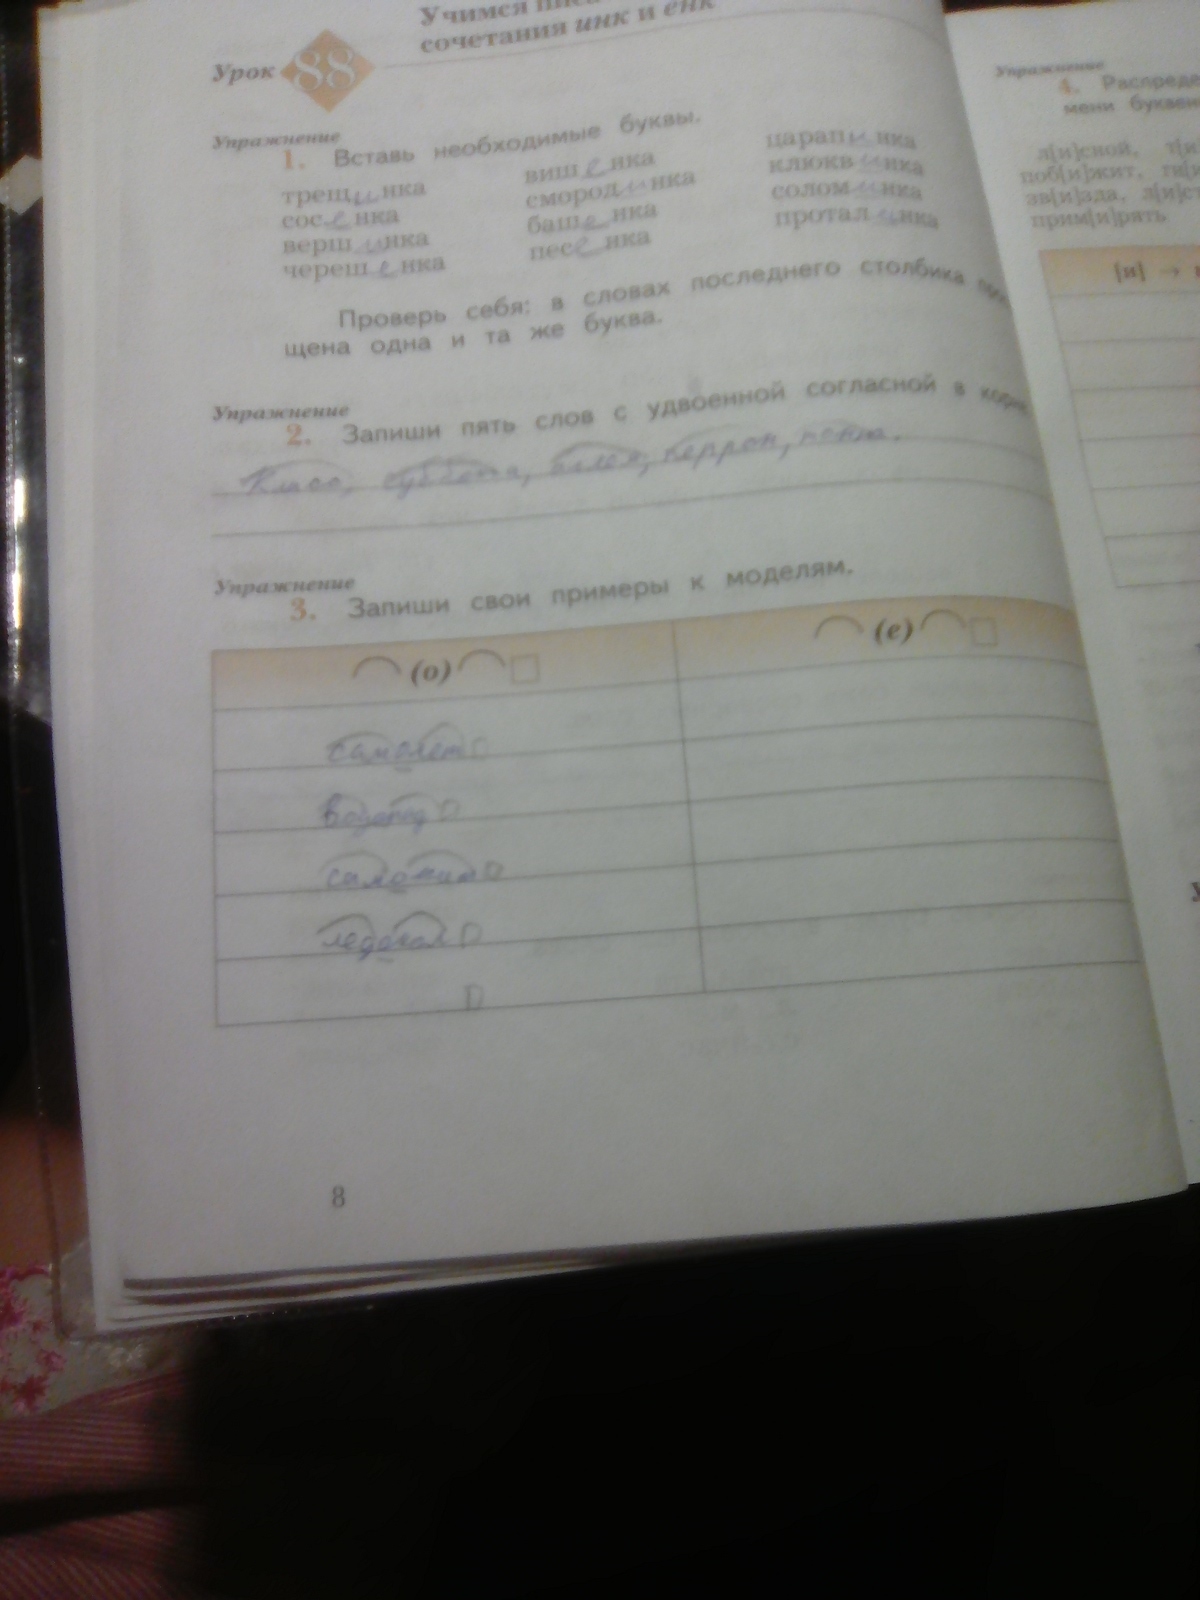 Учимся писа
сочетания инк и енк
Урок 88
Упражнение
1. Вставь необходимые буквы.
трещинка вишенка царапинка
сосенка смородинка клюквинка
вершинка башенка соломинка
черешенка песенка проталинка
Проверь себя: в словах последнего столбика
щена одна и та же буква.
Упражнение
2. Запиши пять слов с удвоенной согласной в корне
Класс, суббота, аллея, перрон,
Упражнение
3. Запиши свои примеры к моделям.
(о) (е)
самолет
водопад
ледокол
8
Упражнение
4. Распреде
мени буквен
л[и]сной, т[и]
поб[и]жит, гн[и]
зв[и]зда, л[и]ст
прим[и]рять
[и] →